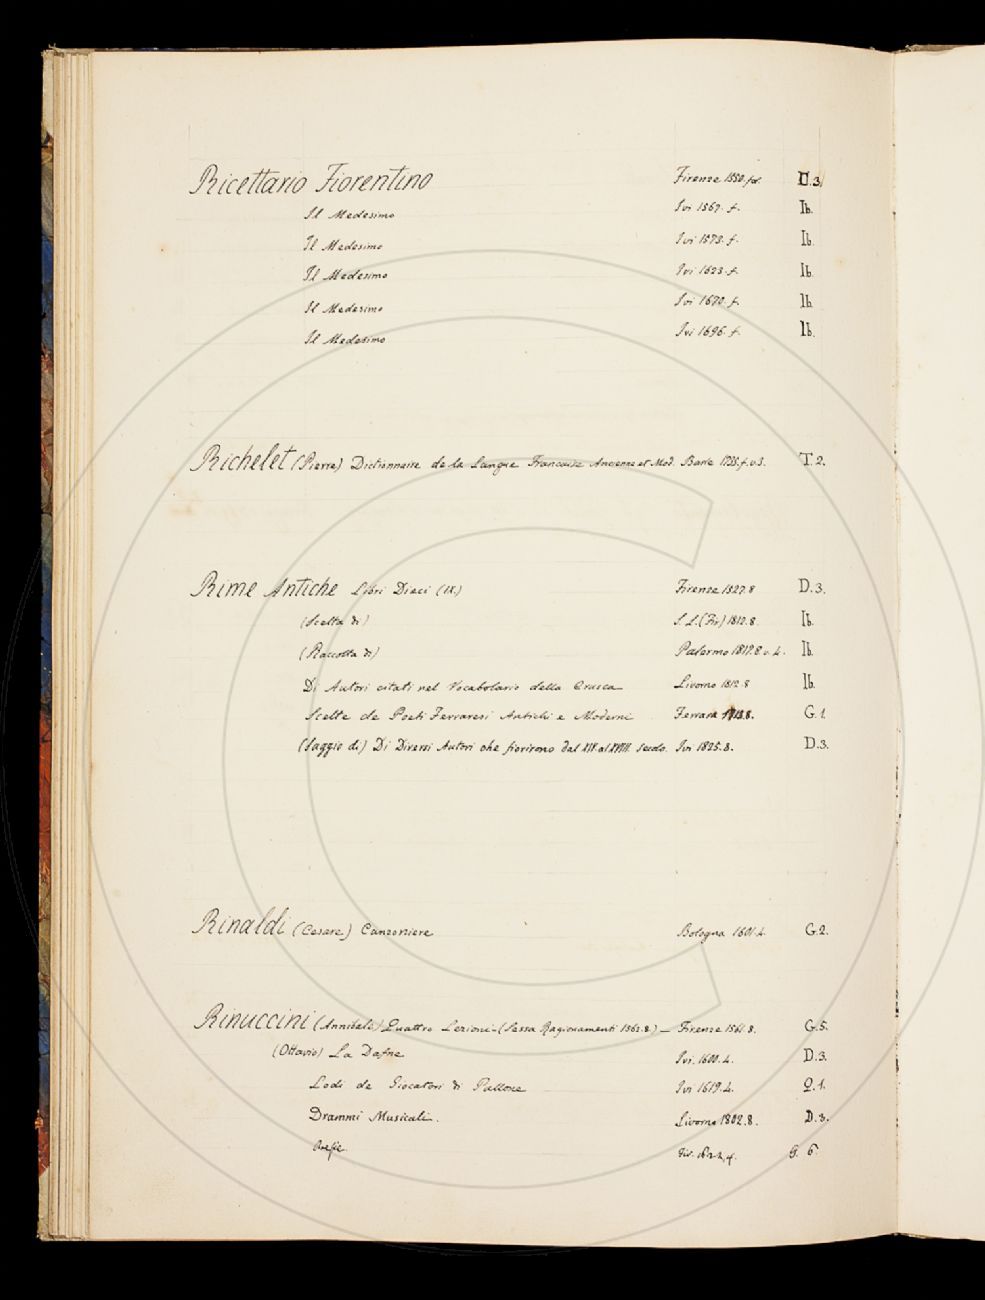 Ricettario Fiorentino Firenze 1550. fol. D.3
Il Medesimo Ivi 1567. f. Ib.
Il Medesimo Ivi 1573. f. Ib.
Il Medesimo Ivi 1623. f. Ib.
Il Medesimo Ivi 1670. f. Ib.
Il Medesimo Ivi 1696. f. Ib.
Richelet (Pierre) Dictionnaire de la Langue Francoise Ancienne et Mod. Basle 1735. f. v. 3. T. 2.
Rime Antiche Libri Dieci (IX.) Firenze 1527. 8 D. 3.
(Scelta di) S. L. (Fir) 1812. 8. Ib.
(Raccolta di) Palermo 1817. 8 v. 4. Ib.
Di Autori citati nel Vocabolario della Crusca Livorno 1812. 8 Ib.
Scelte de Poeti Ferraresi Antichi e Moderni Ferrara 1713. 8. G. 1.
(Saggio di) Di Diversi Autori che fiorirono dal XIV. al XVIII. Secolo. Ivi 1825. 8. D. 3.
Rinaldi (Cesare) Canzoniere Bologna 1601. 4. G. 2.
Rinuccini (Annibale) Quattro Lezioni - (Sassa Ragionamenti 1562. 8.) — Firenze 1561. 8. G. 5.
(Ottavio) La Dafne Ivi. 1600. 4. D. 3.
Lodi de Giocatori di Pallone Ivi 1619. 4. Q. 1.
Drammi Musicali. Livorno 1802. 8. D. 3.
Poesie. Fir. 1622, 4. G. 6.